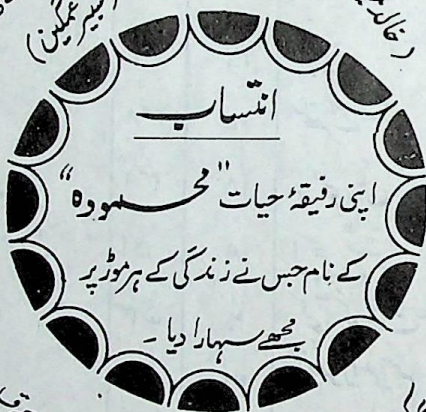 (خالد
عمگین)
انتساب
اپنی رفیقۂ حیات "محمودہ"
کے نام جس نے زندگی کے ہر موڑ پر
مجھے سہارا دیا ۔